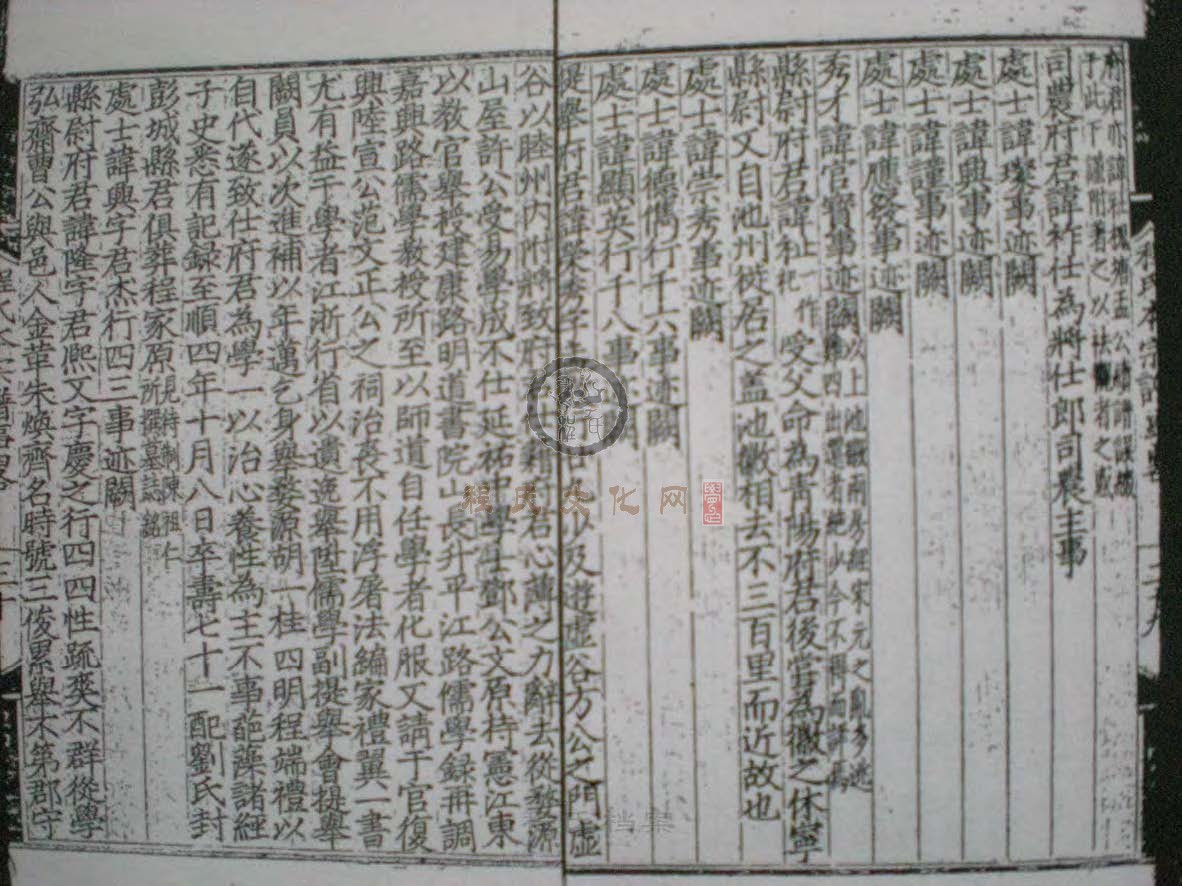 于此下謹附著之以
司農府君諱祚仕為將仕郎司農主事
處士諱璨事迹闕
處士諱興事迹闕
處士諱謹事迹闕
處士諱應發事迹闕
秀才諱官寶事迹闕以上池歙兩房經宋元之亂多逃今不得而詳焉
縣尉府君諱祉一作祀受父命為青陽府君後嘗為徽之休寧
縣尉又自池州徙居之蓋池徽相去不三百里而近故也
處士諱崇秀事迹闕
處士諱德儁行千六事迹闕
處士諱顯英行千八事迹闕
提舉府君諱榮秀字少及遊虛谷方公之門虛
谷以睦州內附將致府君心薄之力辭去從婺源
山屋許公受易學成不仕延祐中學士鄧公文原持憲江東
以教官舉授建康路明道書院山長升平江路儒學録再調
嘉興路儒學教授所至以師道自任學者化服又請于官復
興陸宣公范文正公之祠治喪不用浮屠法編家禮翼一書
尤有益于學者江浙行省以遺逸舉陞儒學副提舉會提舉
闕員以次進補以年邁乞身舉婺源胡一桂四明程端禮以
自代遂致仕府君為學一以治心養性為主不事葩藻諸經
子史悉有記録至順四年十月八日卒壽七十一配劉氏封
彭城縣君俱葬程家原見待制陳祖仁所撰墓誌銘
處士諱興字君杰行四三事迹闕
縣尉府君諱隆字君熙又字慶之行四四性疏爽不群從學
弘齋曹公與邑人金革朱煥齊名時號三俊累舉不第郡守
程氏文化网
档案